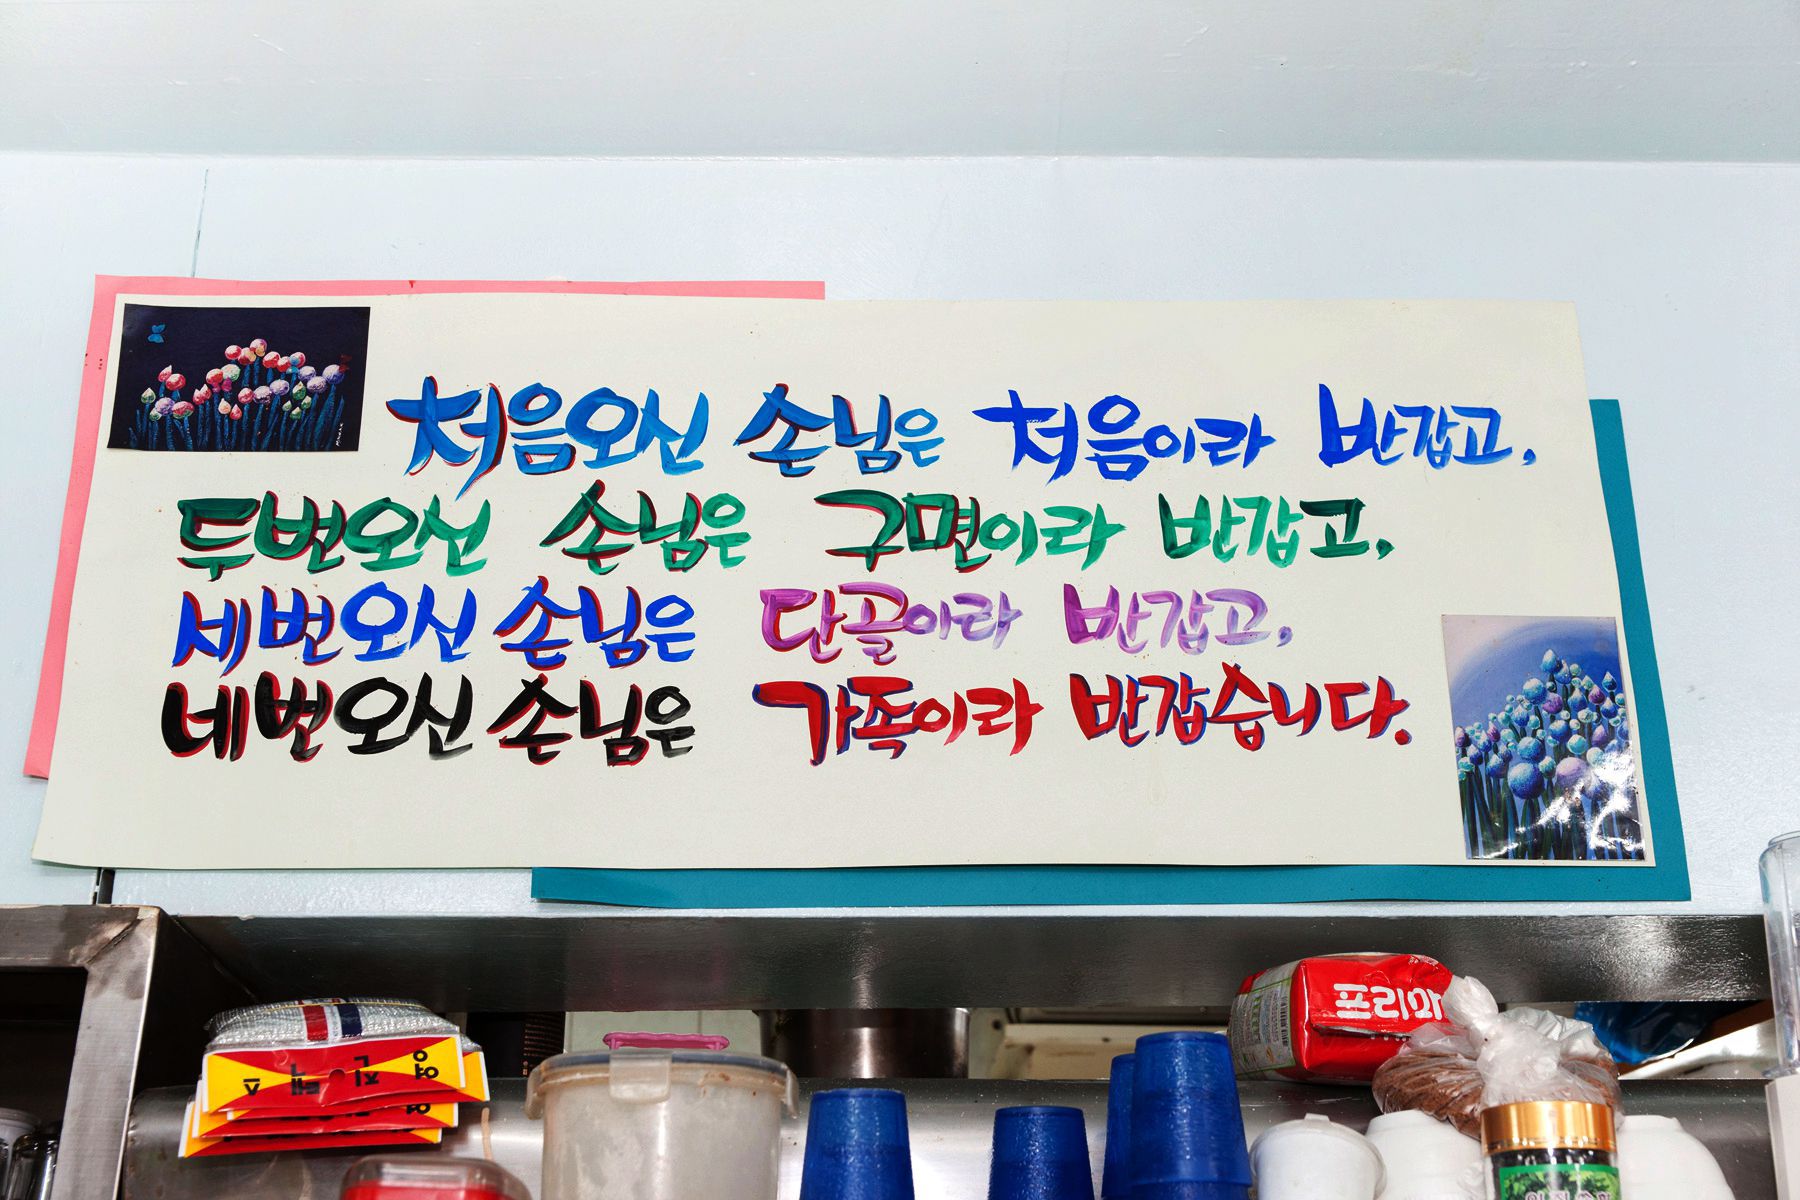 처음오신 손님은 처음이라 반갑고,
두번오신 손님은 구면이라 반갑고,
세번오신 손님은 단골이라 반갑고,
네번오신 손님은 가족이라 반갑습니다.
프리마